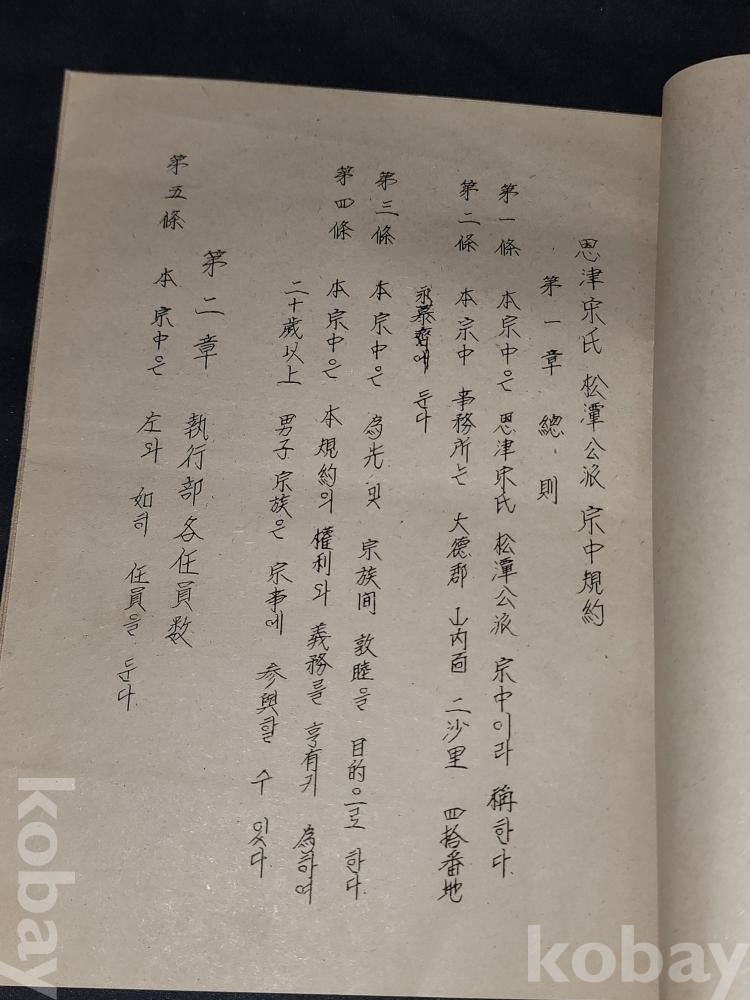 恩津宋氏 松潭公派 宗中規約
第一章 總則
第一條 本宗中은 恩津宋氏 松潭公派 宗中이라 稱한다.
第二條 本宗中 事務所는 大德郡 山内面 二沙里 四拾番地
永慕齋에 둔다
第三條 本宗中은 為先 및 宗族间 敦睦을 目的으로 한다.
第四條 本宗中은 本規約의 權利와 義務를 享有키 為하여
二十歲以上 男子宗族은 宗事에 参與할 수 있다.
第二章 執行部各任員数
第五條 本宗中은 左와 如히 任員을 둔다.
kobay
kobay